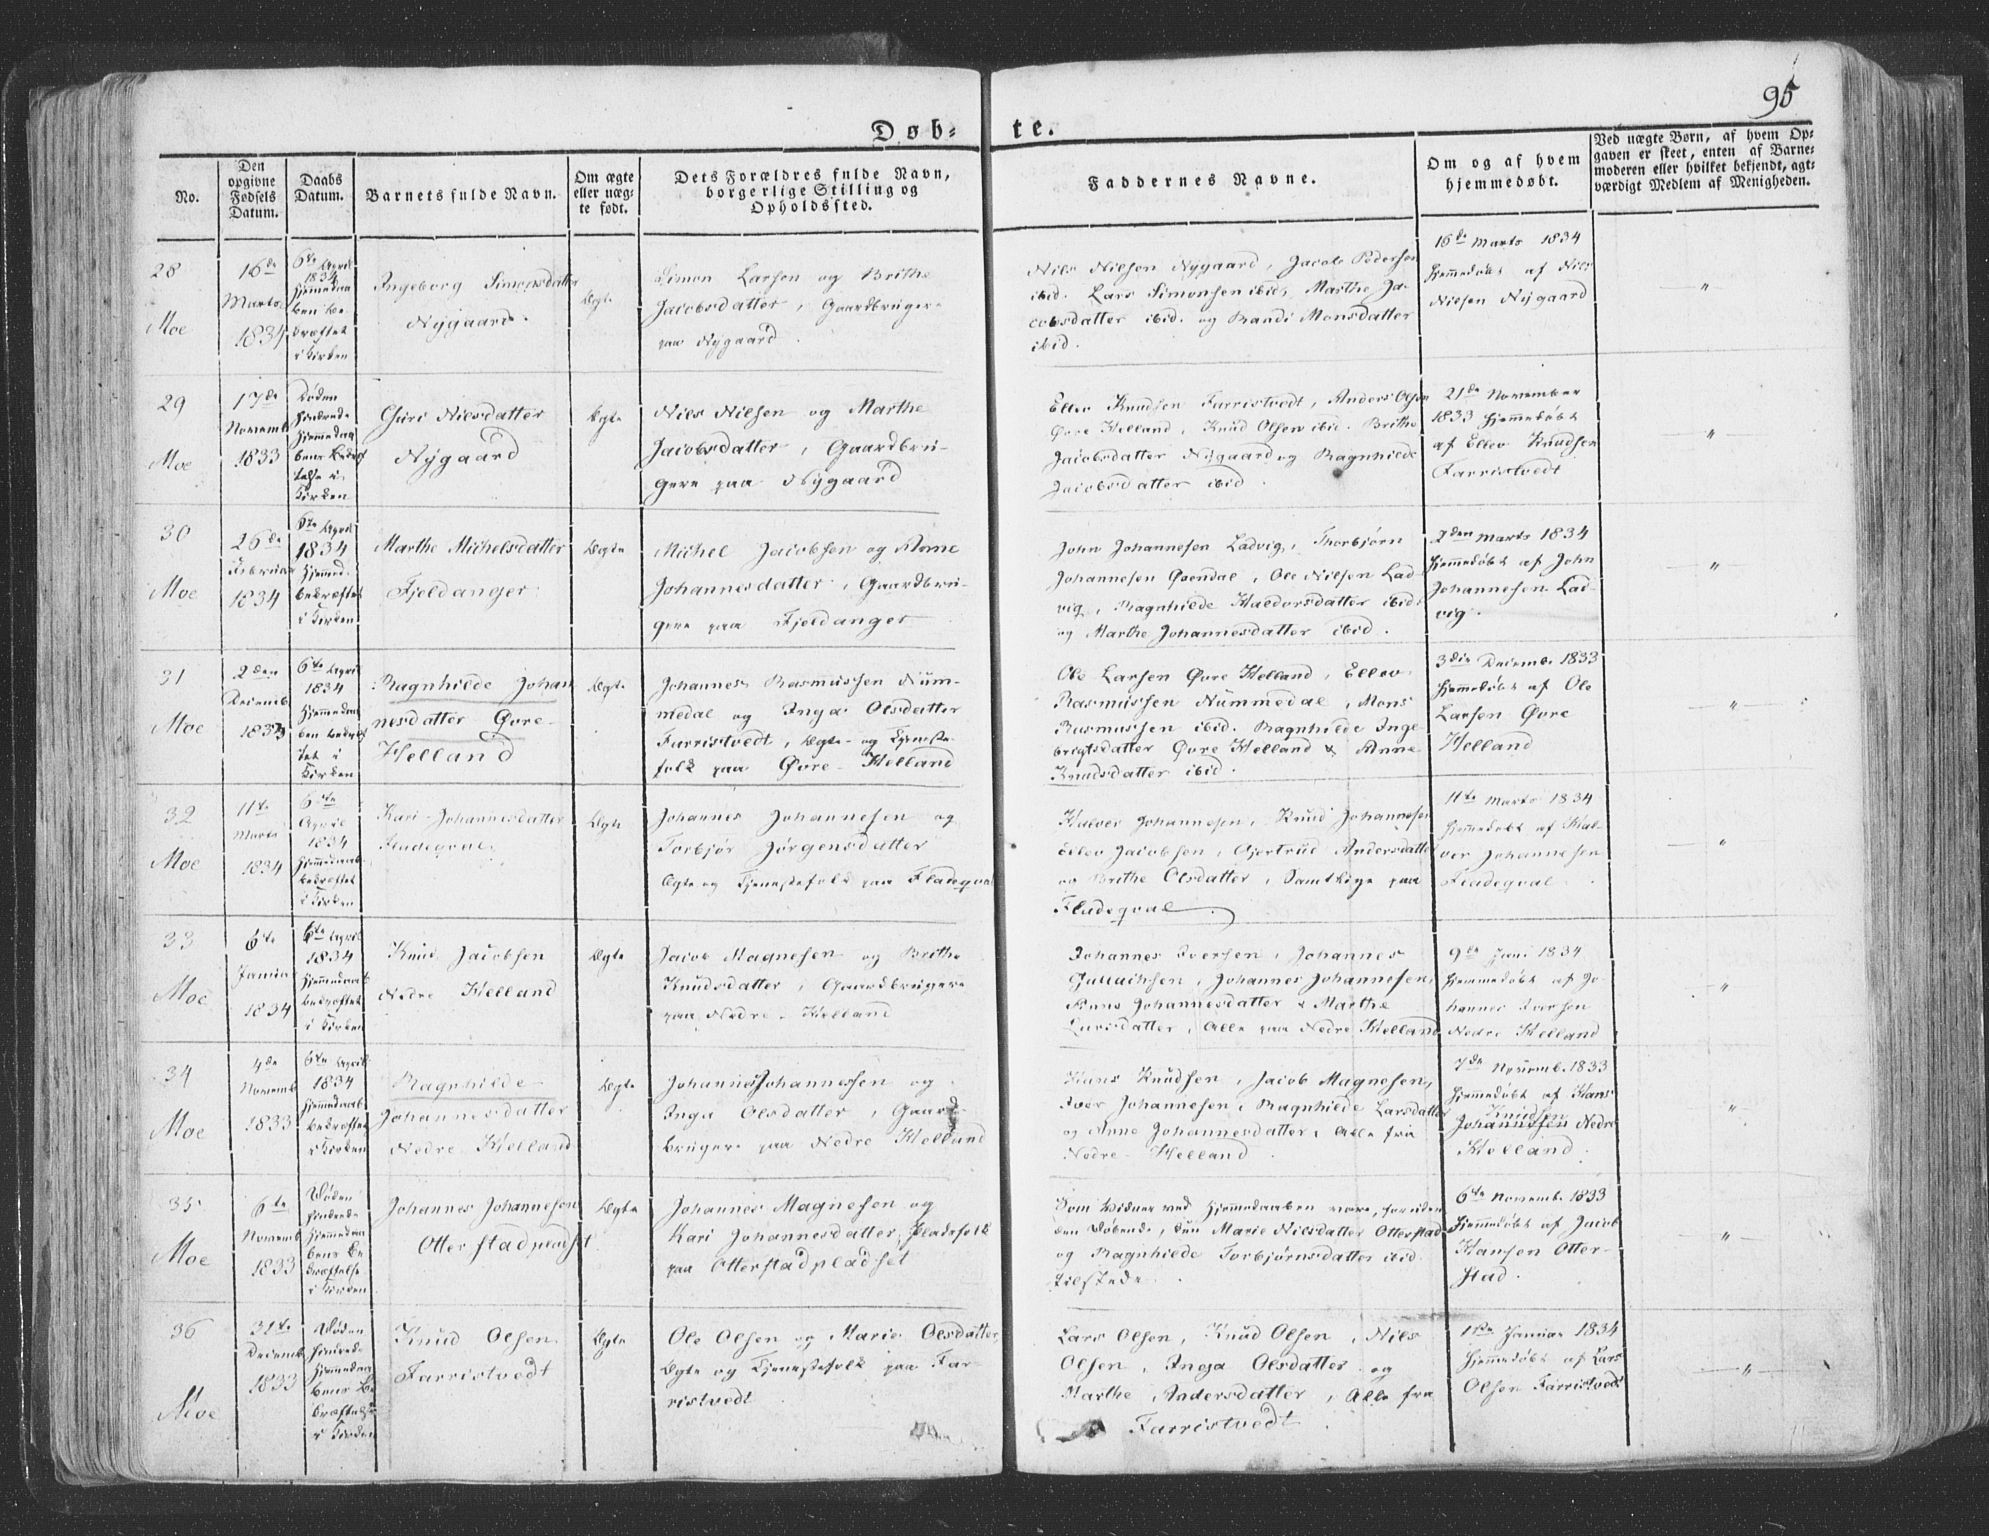 95
Døb- te.
No.
Den
opgivne
Fødsels
Datum.
Daabs
Datum.
Barnets fulde Navn.
Om ægte
eller uæg-
te født.
Dets Forældres fulde Navn,
borgerlige Stilling og
Opholdssted.
Faddernes Navne.
Om og af hvem
hjemmedøbt.
Ved uægte Børn, af hvem Op-
gaven er skeet, enten af Barne-
moderen eller hvilket bekjendt, agt-
værdigt Medlem af Menigheden.
28
Moe
16de
Marts
1834
6te April
1834
hjemmedaa
ben be-
kræftet
i Kirken
Ingeborg Simonsdatter
Nÿgaard.
Ægte
Simon Larsen og Brithe
Jacobsdatter, Gaardbruger-
paa Nÿgaard.
Nils Nielsen Nÿgaard, Jacob Pedersen
ibid. Lars Simonsen ibid, Marthe Ja-
cobsdatter ibid. og Randi Monsdatter
ibid.
16de Marts 1834
hjemmedøbt af Nils
Nielsen Nÿgaard
"
29
Moe
17de
Novemb
1833
Døden
hindrede
hjemmedaa
bens Bekræf
telse i
Kirken
Guri Nilsdatter
Nÿgaard
Ægte
Nils Nilsen og Marthe
Jacobsdatter, Gaardbru-
gere paa Nÿgaard
Ellev Knudsen Farristvedt, Anders Olsen
Øvre Helland, Knud Olsen ibid. Brithe
Jacobsdatter Nÿgaard og Ragnhilde
Jacobsdatter ibid.
21de November
1833 hjemmedøbt
af Ellev Knudsen
Farristvedt
"
30
Moe
26de
Februar
1834
6te April
1834
hjemmed.
bekræftet
i Kirken
Marthe Michelsdatter
Fjeldanger
Ægte
Michel Jacobsen og Anne
Johannesdatter, Gaardbru-
gere paa Fjeldanger
John Johannesen Ladvig, Thorbjörn
Johannesen Øvendal, Ole Nilsen Lad-
vig, Ragnhilde Haldorsdatter ibid.
og Marthe Johannesdatter ibid.
2den Marts 1834
hjemmedøbt af John
Johannesen Lad-
vig.
"
31
Moe
2den
Decemb.
1833
6te April
1834
hjemmedaa
ben bekræf
tet i
Kirken
Ragnhilde Johan
nesdatter Øvre-
Helland
Ægte
Johannes Rasmussen Num-
medal og Inga Olsdatter
Farristvedt, Ægte- og Tjeneste-
folk paa Øvre-Helland
Ole Larsen Øvre Helland, Ellev
Rasmussen Nummedal, Mons
Rasmussen ibid. Ragnhilde Inge
brigtsdatter Øvre Helland & Anne
Knudsdatter ibid.
3die Decemb. 1833
hjemmedøbt af Ole
Larsen Øvre
Helland
"
32
Moe
11te
Marts
1834
6te
April
1834
hjemmedaab
bekræftet
i Kirken
Kari Johannesdatter
Fladeqval.
Ægte
Johannes Johannesen og
Torbjør Jørgensdatter
Ægte og Tjenestefolk paa Fladeqval
Halver Johannesen, Knud Johannesen
Ellev Jacobsen, Gjertrud Andersdatter
og Brithe Olsdatter, Samtlige paa
Fladeqval.
11te Marts 1834
hjemmedøbt af Hal-
ver Johannesen
Fladeqval.
"
33
Moe
6te
Januar
1834
6te April
1834
hjemmedaab
bekræftet
i Kirken
Knud Jacobsen
Nedre Helland
Ægte
Jacob Magnesen og Brithe
Knudsdatter, Gaardbrugere
paa Nedre-Helland
Johannes Iversen, Johannes
Gullachsen, Johannes Johannesen,
Anna Johannesdatter & Marthe
Larsdatter, Alle paa Nedre Helland
9de Jan. 1834
hjemmedøbt af Jo
hannes Iversen
Nedre Helland
"
34
Moe
4de
Novemb
1833
6te April
1834
hjemmedaab
bekræftet
i Kirken
Ragnhilde
Johannesdatter
Nedre Helland
Ægte
Johannes Johannesen og
Inga Olsdatter, Gaard-
brugere paa Nedre Helland
Hans Knudsen, Jacob Magnesen,
Iver Johannesen, Ragnhilde Larsdatter
og Anne Johannesdatter, Alle fra
Nedre-Helland.
7de Novemb. 1833
hjemmedøbt af Hans
Knudsen
Johannesen Nedre
Helland.
"
35
Moe
6te
Novemb
1833
Døden
hindrede
hjemmedaa
bens Be
kræftelse
i Kirken
Johannes Johannesen
Otterstadpladset.
Ægte
Johannes Magnesen og
Kari Johannesdatter, Pladsfolk
paa Otterstadpladset
Som Vidner ved hjemmedaaben vare, foruden
den Døbende, Marie Nilsdatter Otterstad
og Ragnhilde Torbjørnsdatter ibid
tilstede.
6te Novemb. 1833
hjemmedøbt af Jacob
Hansen Otter-
stad.
"
36
Moe
31te
Decemb
1833
Døden
hindrede
hjemmedaa
bens Be
kræftelse
i Kirken
Knud Olsen
Farristvedt
Ægte
Ole Olsen og Marie Olsdatter,
Ægte og Tjenestefolk paa Far-
ristvedt
Lars Olsen, Knud Olsen, Nils
Olsen, Inga Olsdatter og
Marthe Andersdatter, Alle fra
Farristvedt.
Januar 1834
hjemmedøbt af Lars
Olsen Farristvedt
"